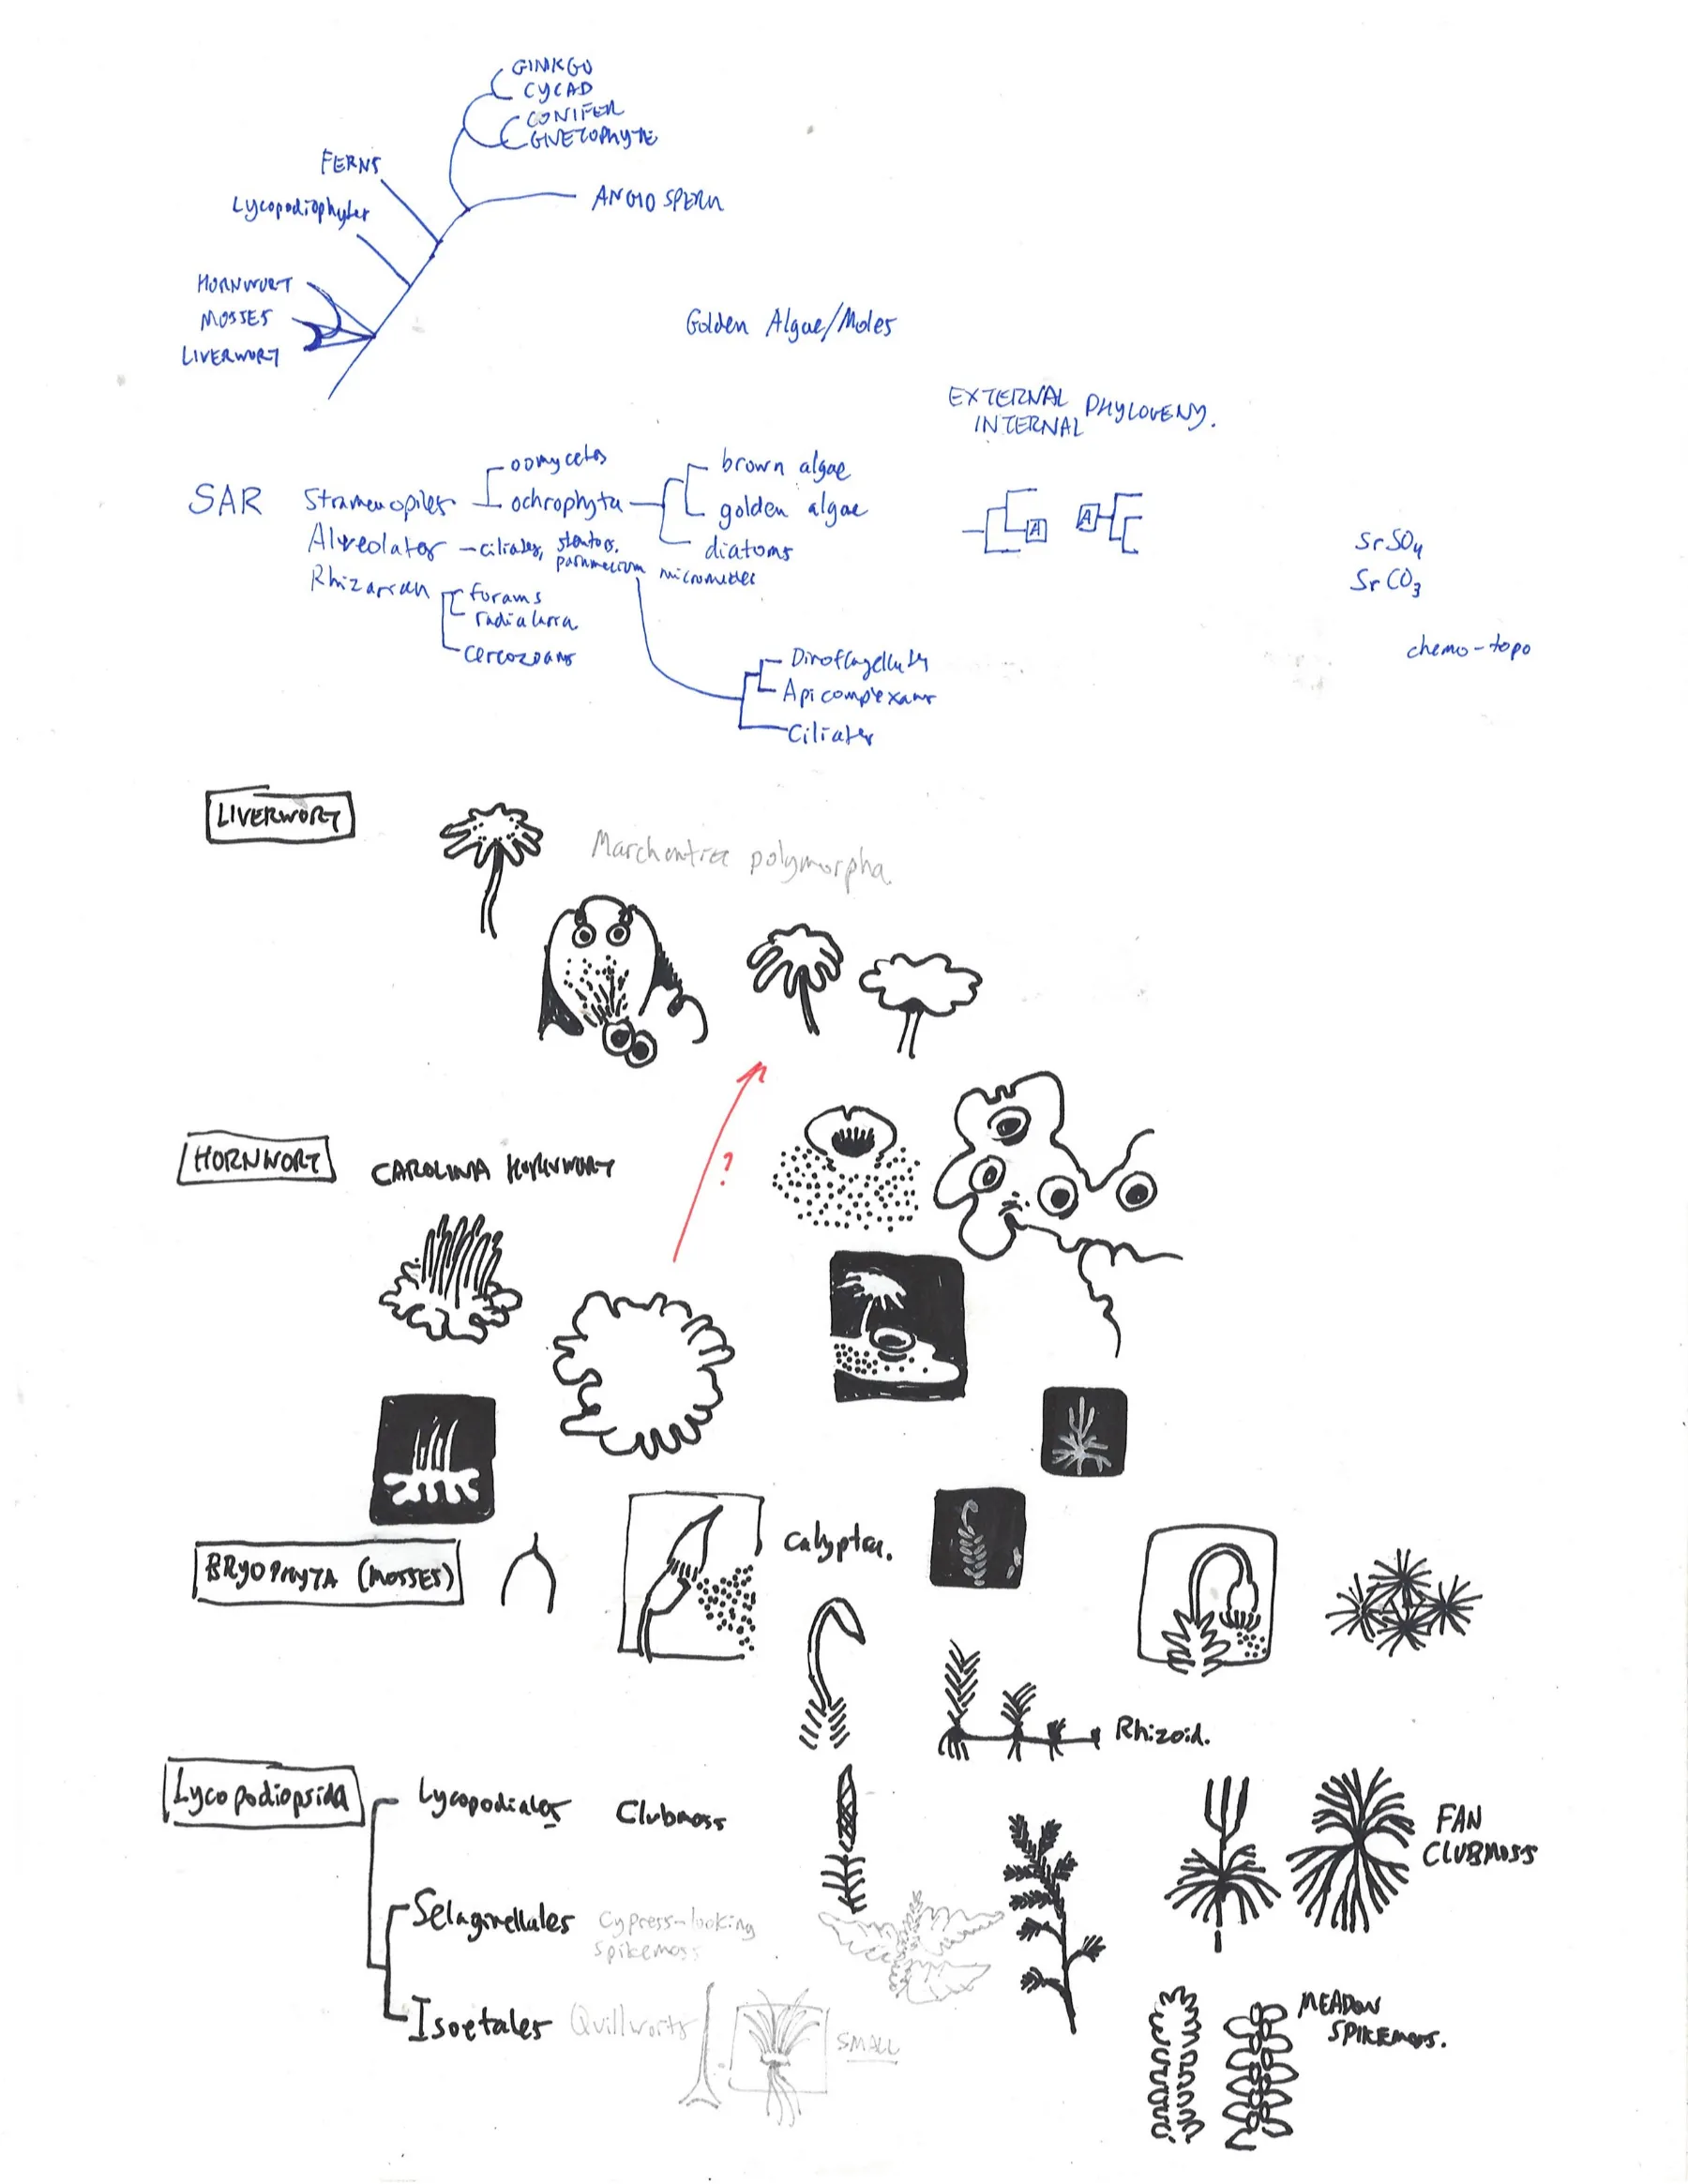 GINKGO
CYCAD
CONIFER
GNETOPHYTE
FERNS
ANGIOSPERM
Lycopodiophytes
HORNWORT
MOSSES
LIVERWORT
Golden Algae/Moles
EXTERNAL PHYLOGENY.
INTERNAL
SAR
Stramenopiles
oomycetes
ochrophyta
brown algae
golden algae
diatoms
Alveolates - ciliates, stentors,
paramecium
Rhizarian
forams
radialaria
cercozoans
Dinoflagellates
Apicomplexans
Ciliates
A
A
SrSO4
SrCO3
chemo-topo
LIVERWORT
polymorpha
HORNWORT
CAROLINA HORNWORT
?
BRYOPHYTA (MOSSES)
Calyptra.
Rhizoid.
Lycopodiopsida
Lycopodiales
Clubmoss
FAN
CLUBMOSS
Selaginellales
Cypress-looking
spikemoss
Isoetales
Quillworts
SMALL
MEADOW
SPIKEMOSS.